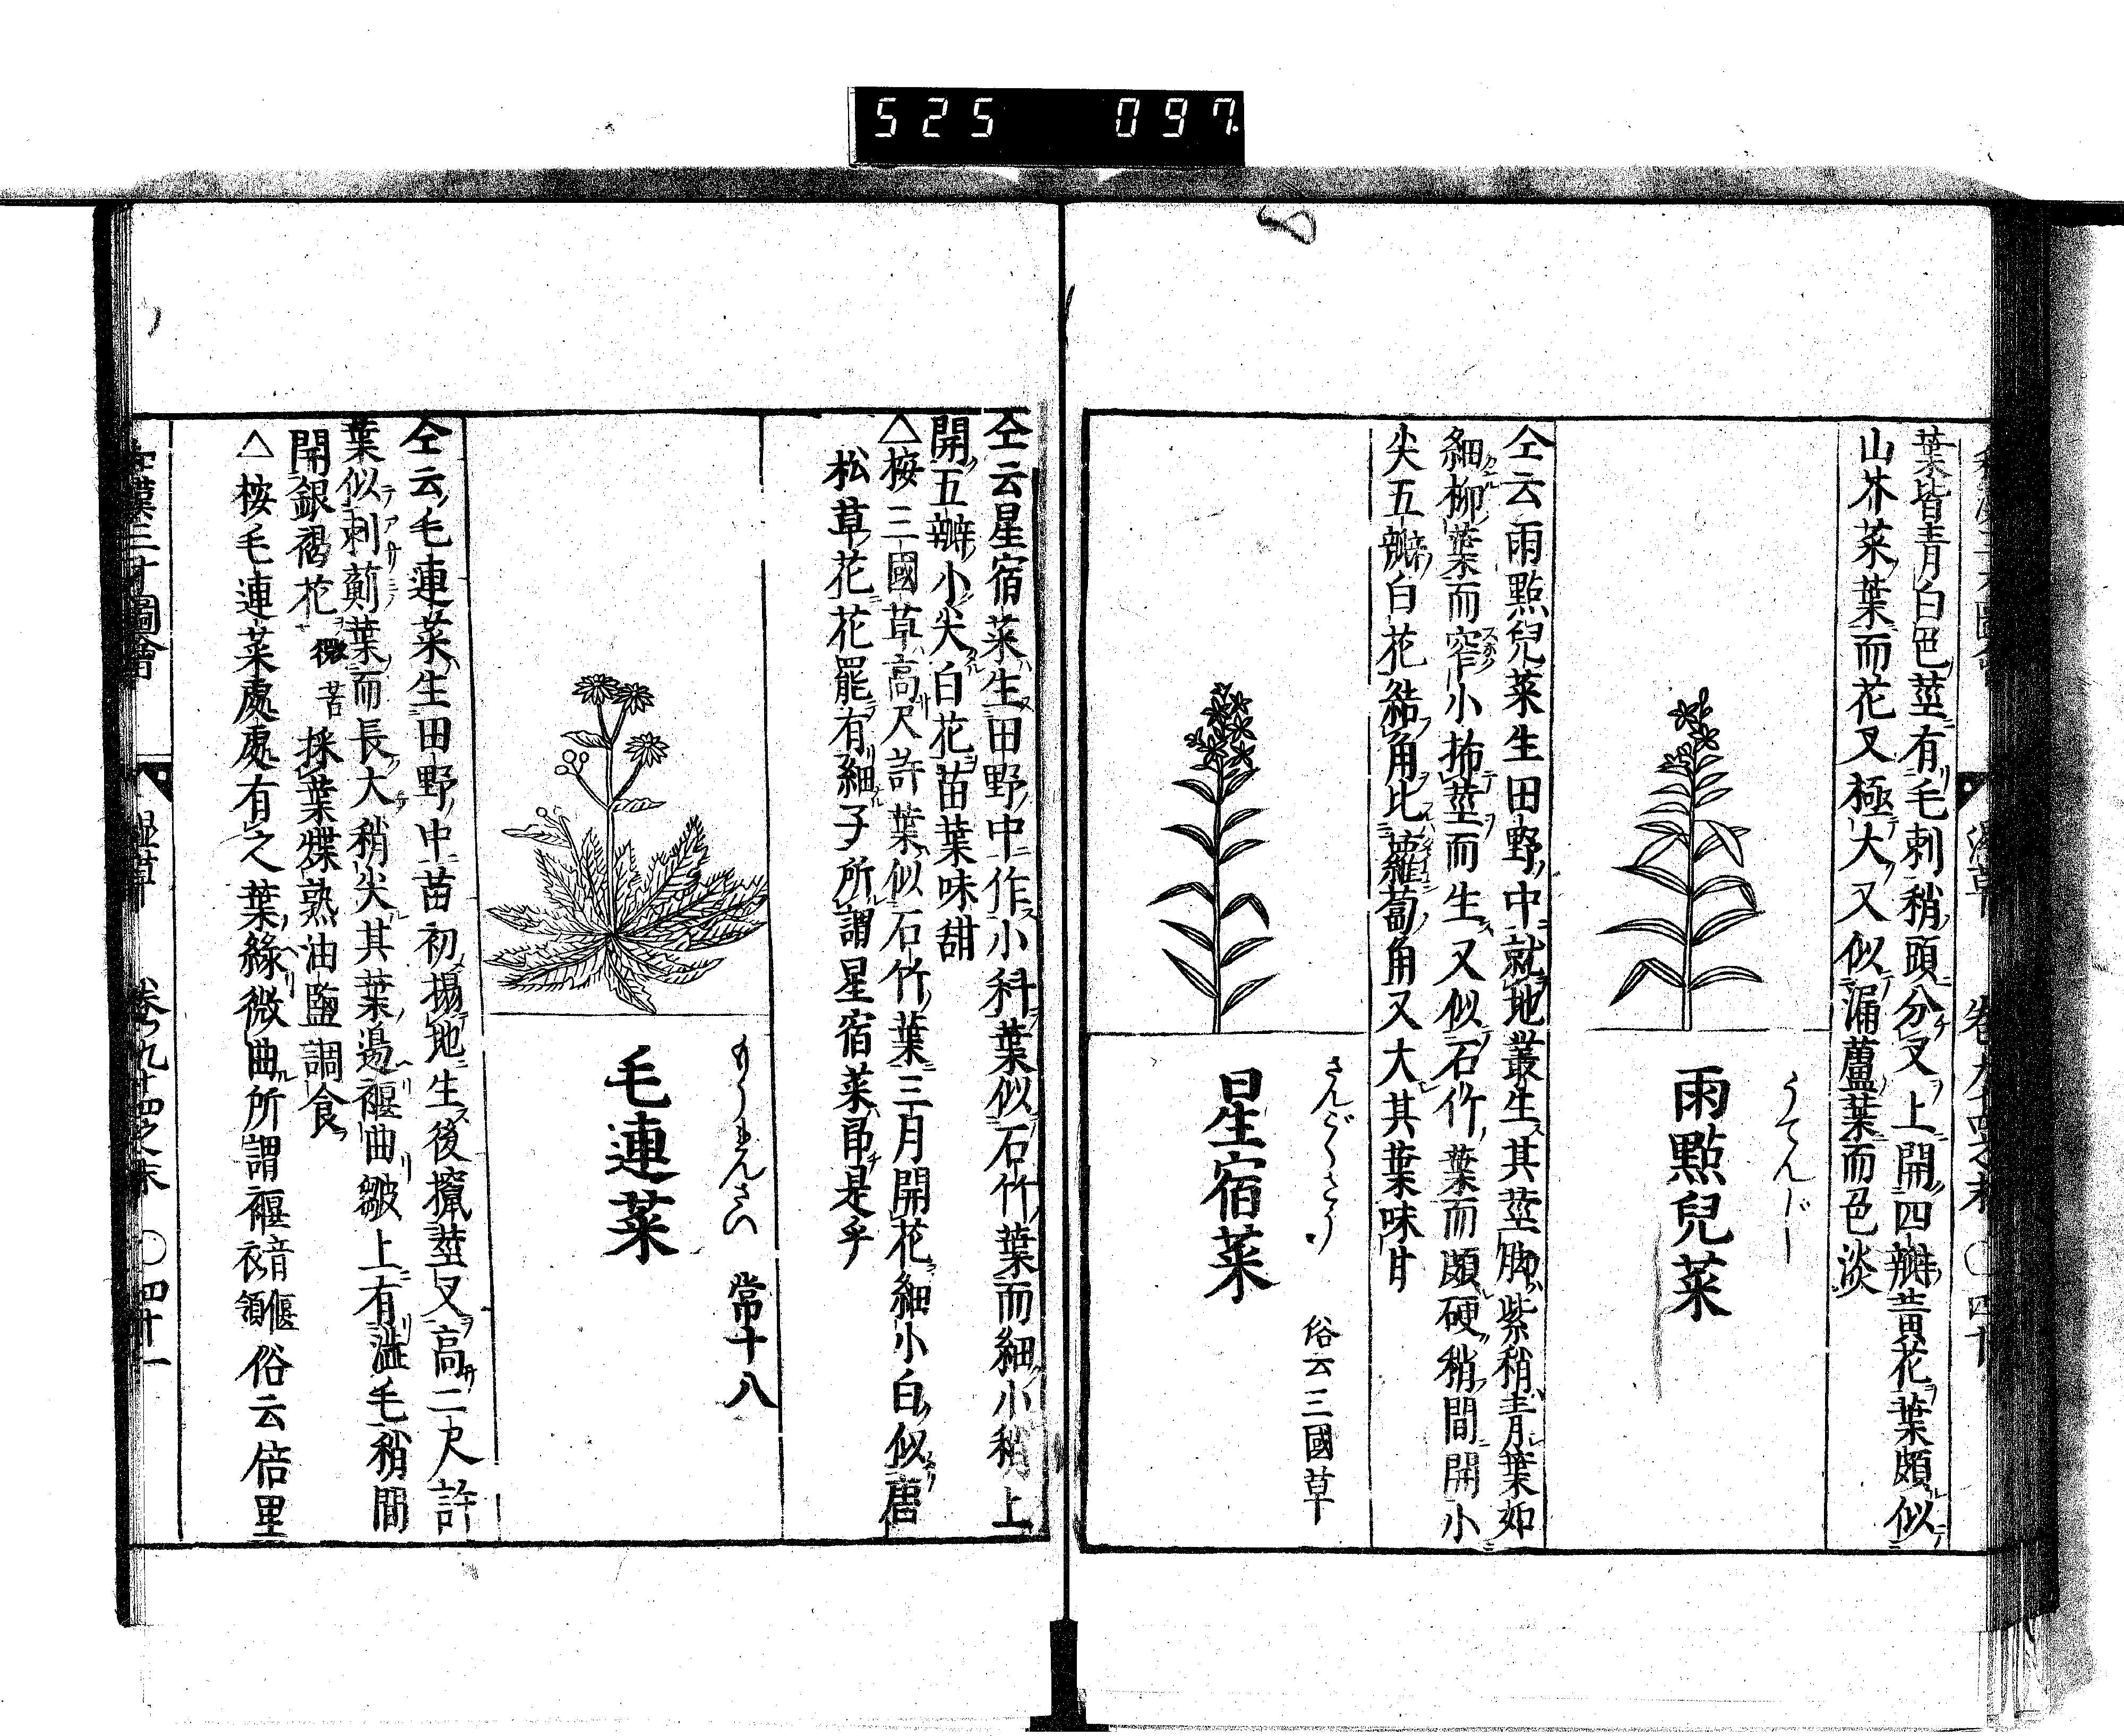 525 097
葉皆青白色莖有毛刺稍頭分叉上開四瓣黃花葉頗似
山芥菜葉而花叉極大又似漏蘆葉而色淡
うてんじー
雨點兒菜
仝云雨點兒菜生田野中就地叢生其莖脚紫稍青葉如
細柳葉而窄小抪莖而生又似石竹葉而頗硬稍間開小
尖五瓣白花結角比蘿蔔角又大其葉味甘
さんごくさう
俗云三國草
星宿菜
仝云星宿菜生田野中作小科葉似石竹葉而細小稍上
開五瓣小尖白花苗葉味甜
△桉三國草高尺許葉似石竹葉三月開花細小白似唐
松草花花罷有細子所謂星宿菜即是乎
もうれんさい
常十八
毛連菜
仝云毛連菜生田野中苗初搨地生後攛莖叉高二尺許
葉似刺薊葉而長大稍尖其葉邉褗曲皺上有澁毛稍間
開銀褐花微苦採葉煠熟油鹽調食
△桉毛連菜處處有之葉緣微曲所謂褗音偃衣領俗云倍里
和漢三才圖會 濕草 卷九十四之末 〇四十一